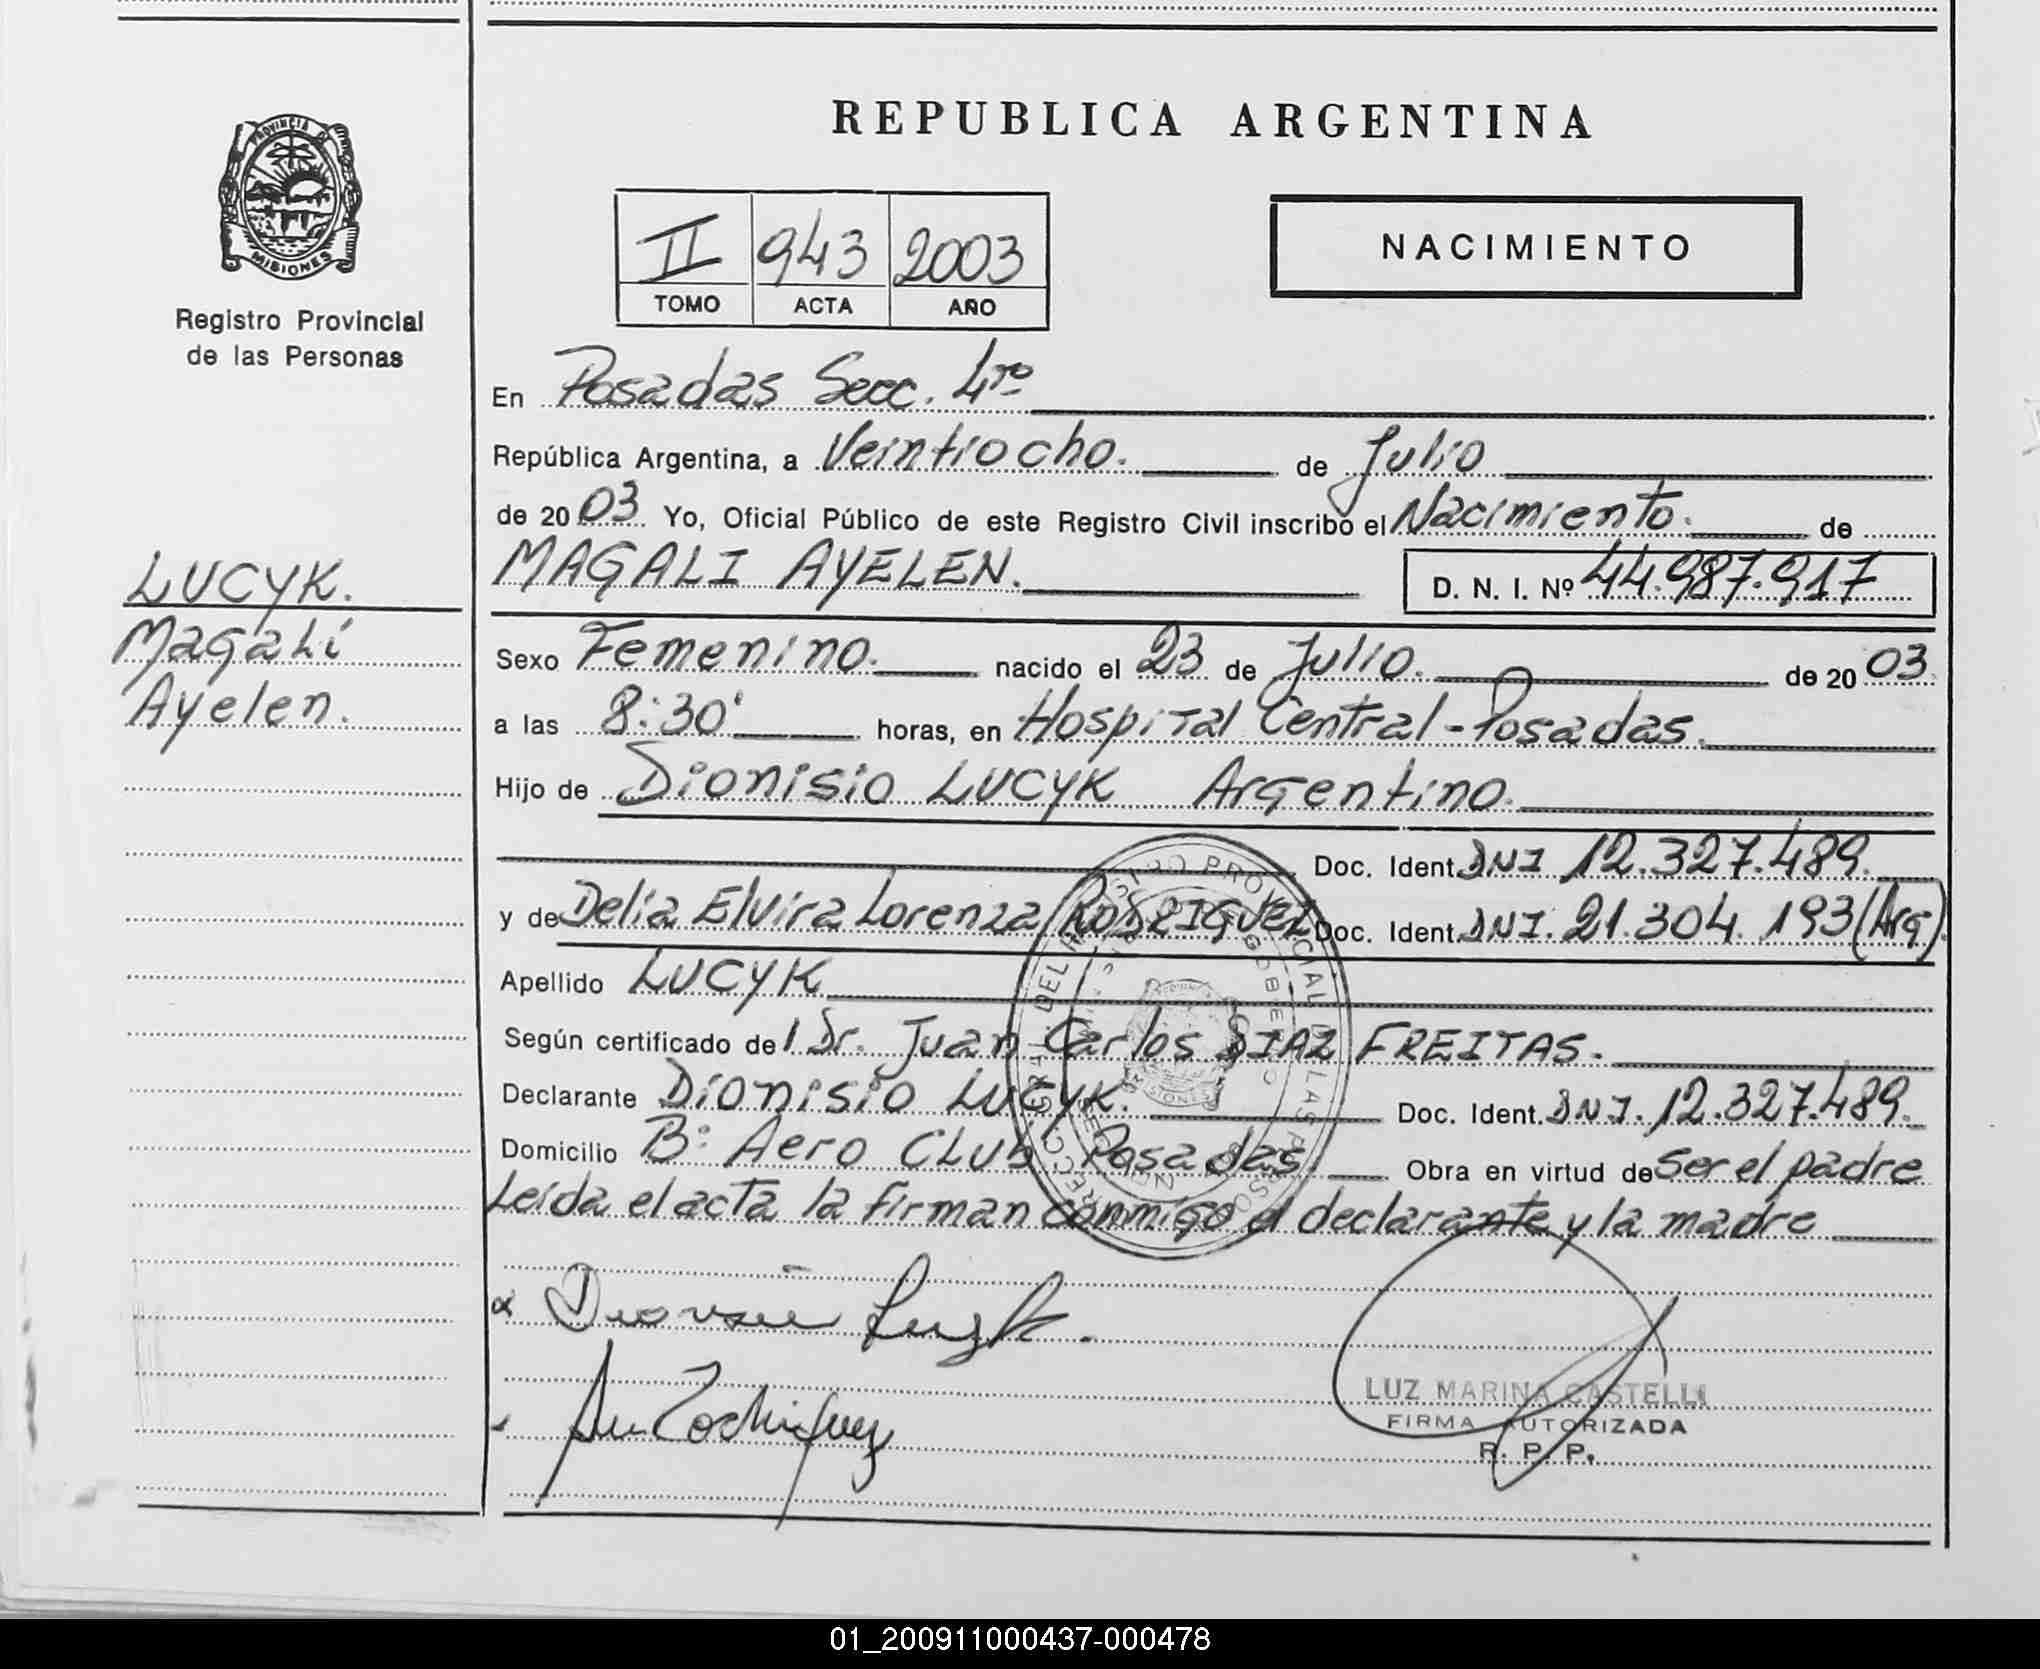 REPUBLICA ARGENTINA
PROVINCIA DE
MISIONES
Registro Provincial
de las Personas
II 943 2003
TOMO ACTA AÑO
NACIMIENTO
En Posadas Secc. 4ta
República Argentina, a Veintiocho. de Julio
de 2003 Yo, Oficial Público de este Registro Civil inscribo el Nacimiento. de
MAGALI AYELEN. D. N. I. Nº 44.987.917
LUCYK.
Magalí
Ayelen.
Sexo Femenino. nacido el 23 de Julio. de 2003
a las 8:30' horas, en Hospital Central - Posadas.
Hijo de Dionisio LUCYK Argentino.
Doc. Ident. DNI 12.327.489.
y de Delia Elvira Lorenza RODRIGUEZ Doc. Ident. DNI. 21.304.193 (Arg).
Apellido LUCYK
Según certificado del Dr. Juan Carlos DIAZ FREITAS.
Declarante Dionisio LUCYK. Doc. Ident. DNI. 12.327.489.
Domicilio Bº Aero Club Posadas. Obra en virtud de ser el padre
Leída el acta la firman conmigo el declarante y la madre
Dionisio Lucyk.
Rodriguez
LUZ MARINA CASTELLI
FIRMA AUTORIZADA
R. P. P.
01_200911000437-000478